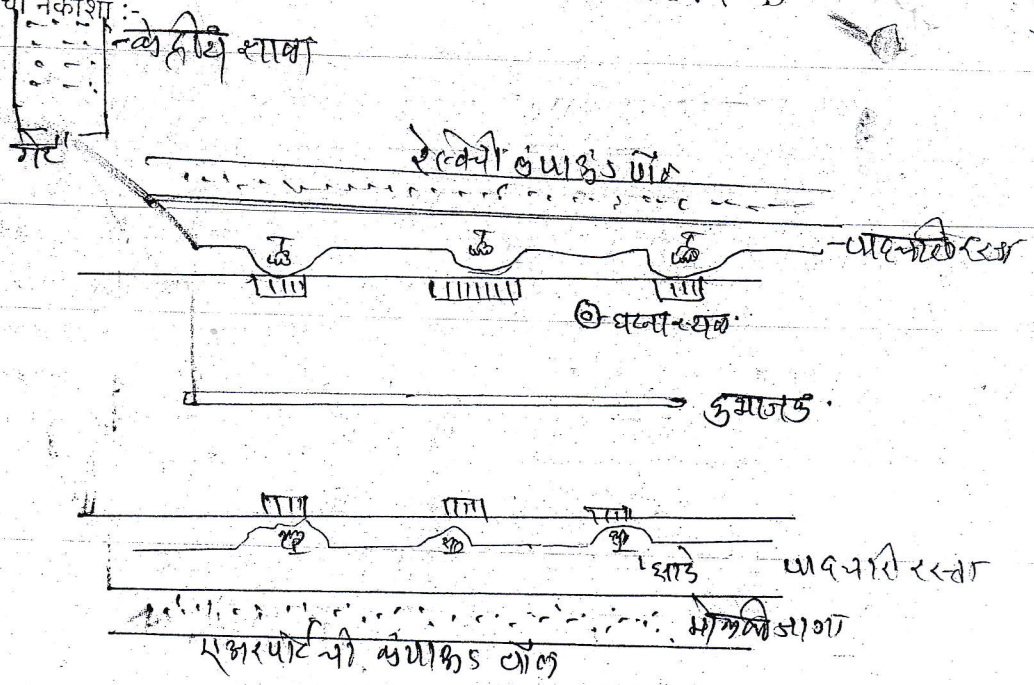 चा नकाशा :-
केंद्रीय शाळा
गेट
रेल्वेची कंपाऊंड वॉल
पादचारी रस्ता
घटनास्थळ
दुभाजक
झाडे
पादचारी रस्ता
मोकळी जागा
एअरपोर्टची कंपाऊंड वॉल